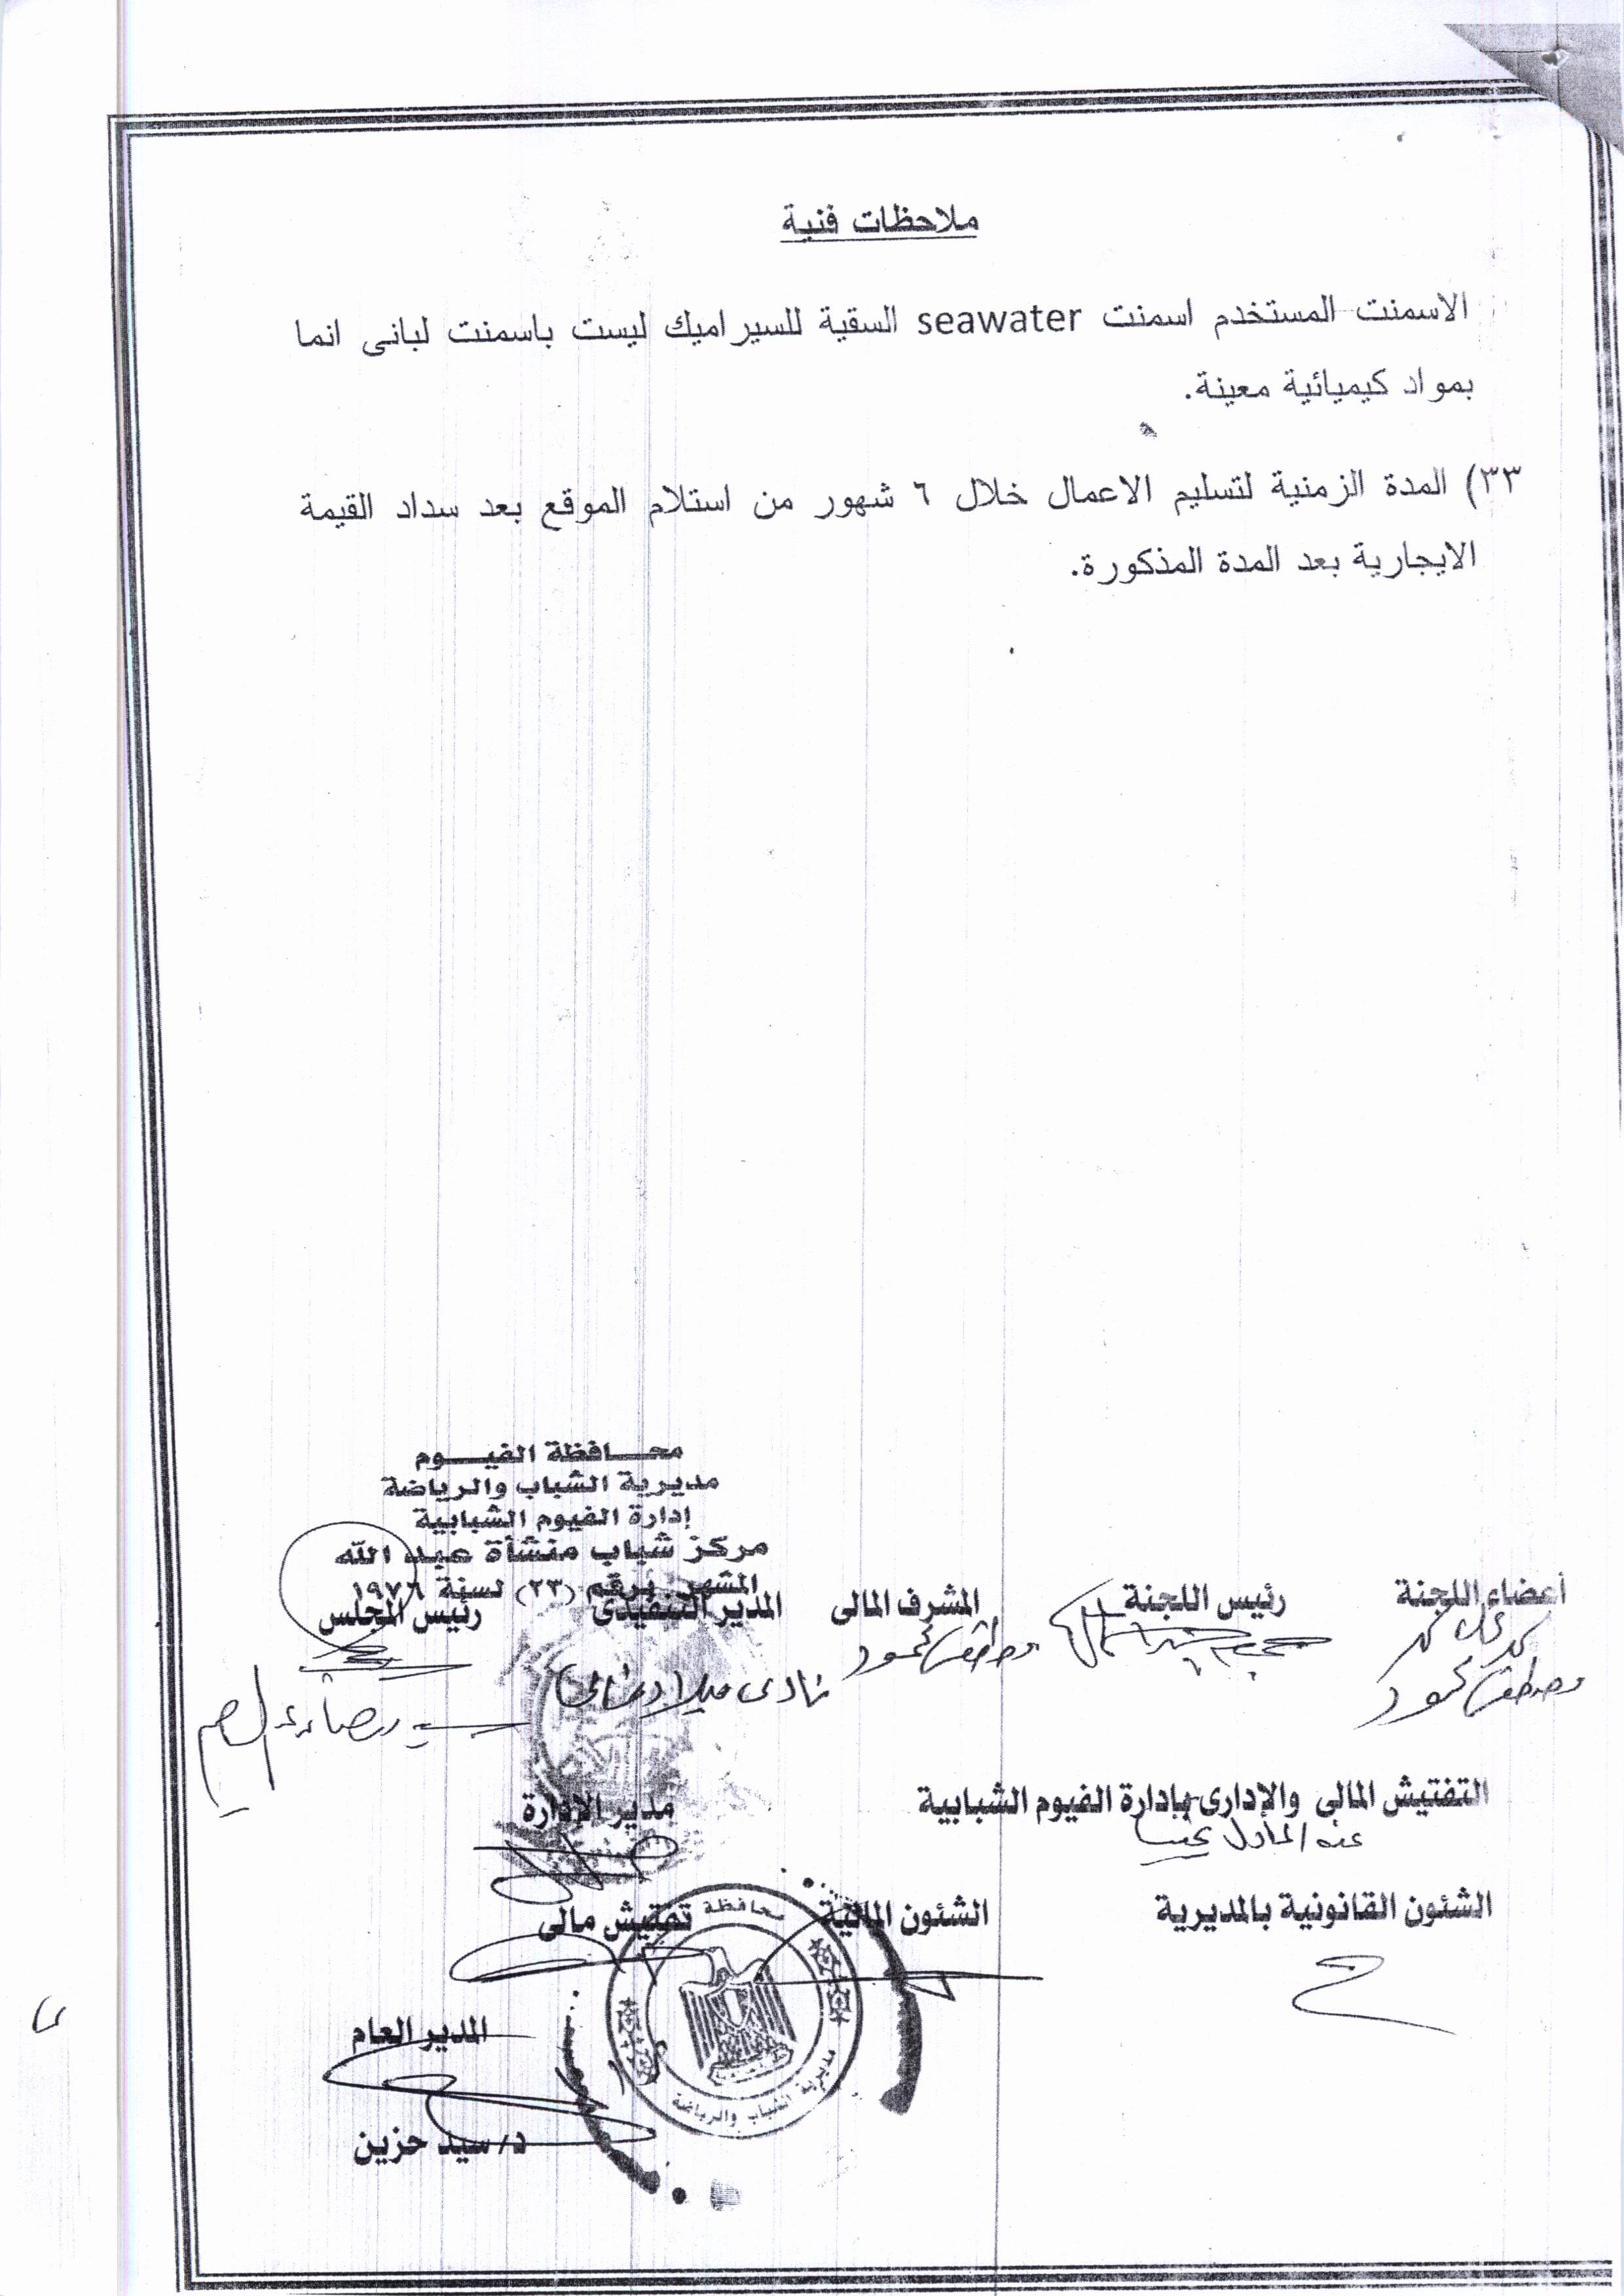 ملاحظات فنية
الاسمنت المستخدم اسمنت seawater السقية للسيراميك ليست باسمنت لبانى انما
بمواد كيميائية معينة.
٣٣) المدة الزمنية لتسليم الاعمال خلال ٦ شهور من استلام الموقع بعد سداد القيمة
الايجارية بعد المدة المذكورة.
محـــافظة الفيـــوم
مديرية الشباب والرياضة
إدارة الفيوم الشبابية
مركز شباب منشأة عبد الله
المشهر برقم (٢٣) لسنة ١٩٧٦
أعضاء اللجنة رئيس اللجنة المشرف المالى المدير التنفيذى رئيس المجلس
مصطفى محمود
مصطفى محمود
نادى ميلاد
سيد رمضان
التفتيش المالى والإدارى بإدارة الفيوم الشبابية مدير الإدارة
الشئون القانونية بالمديرية الشئون المالية تفتيش مالى
محافظة
مديرية الشباب والرياضة
المدير العام
د/ سيد حزين